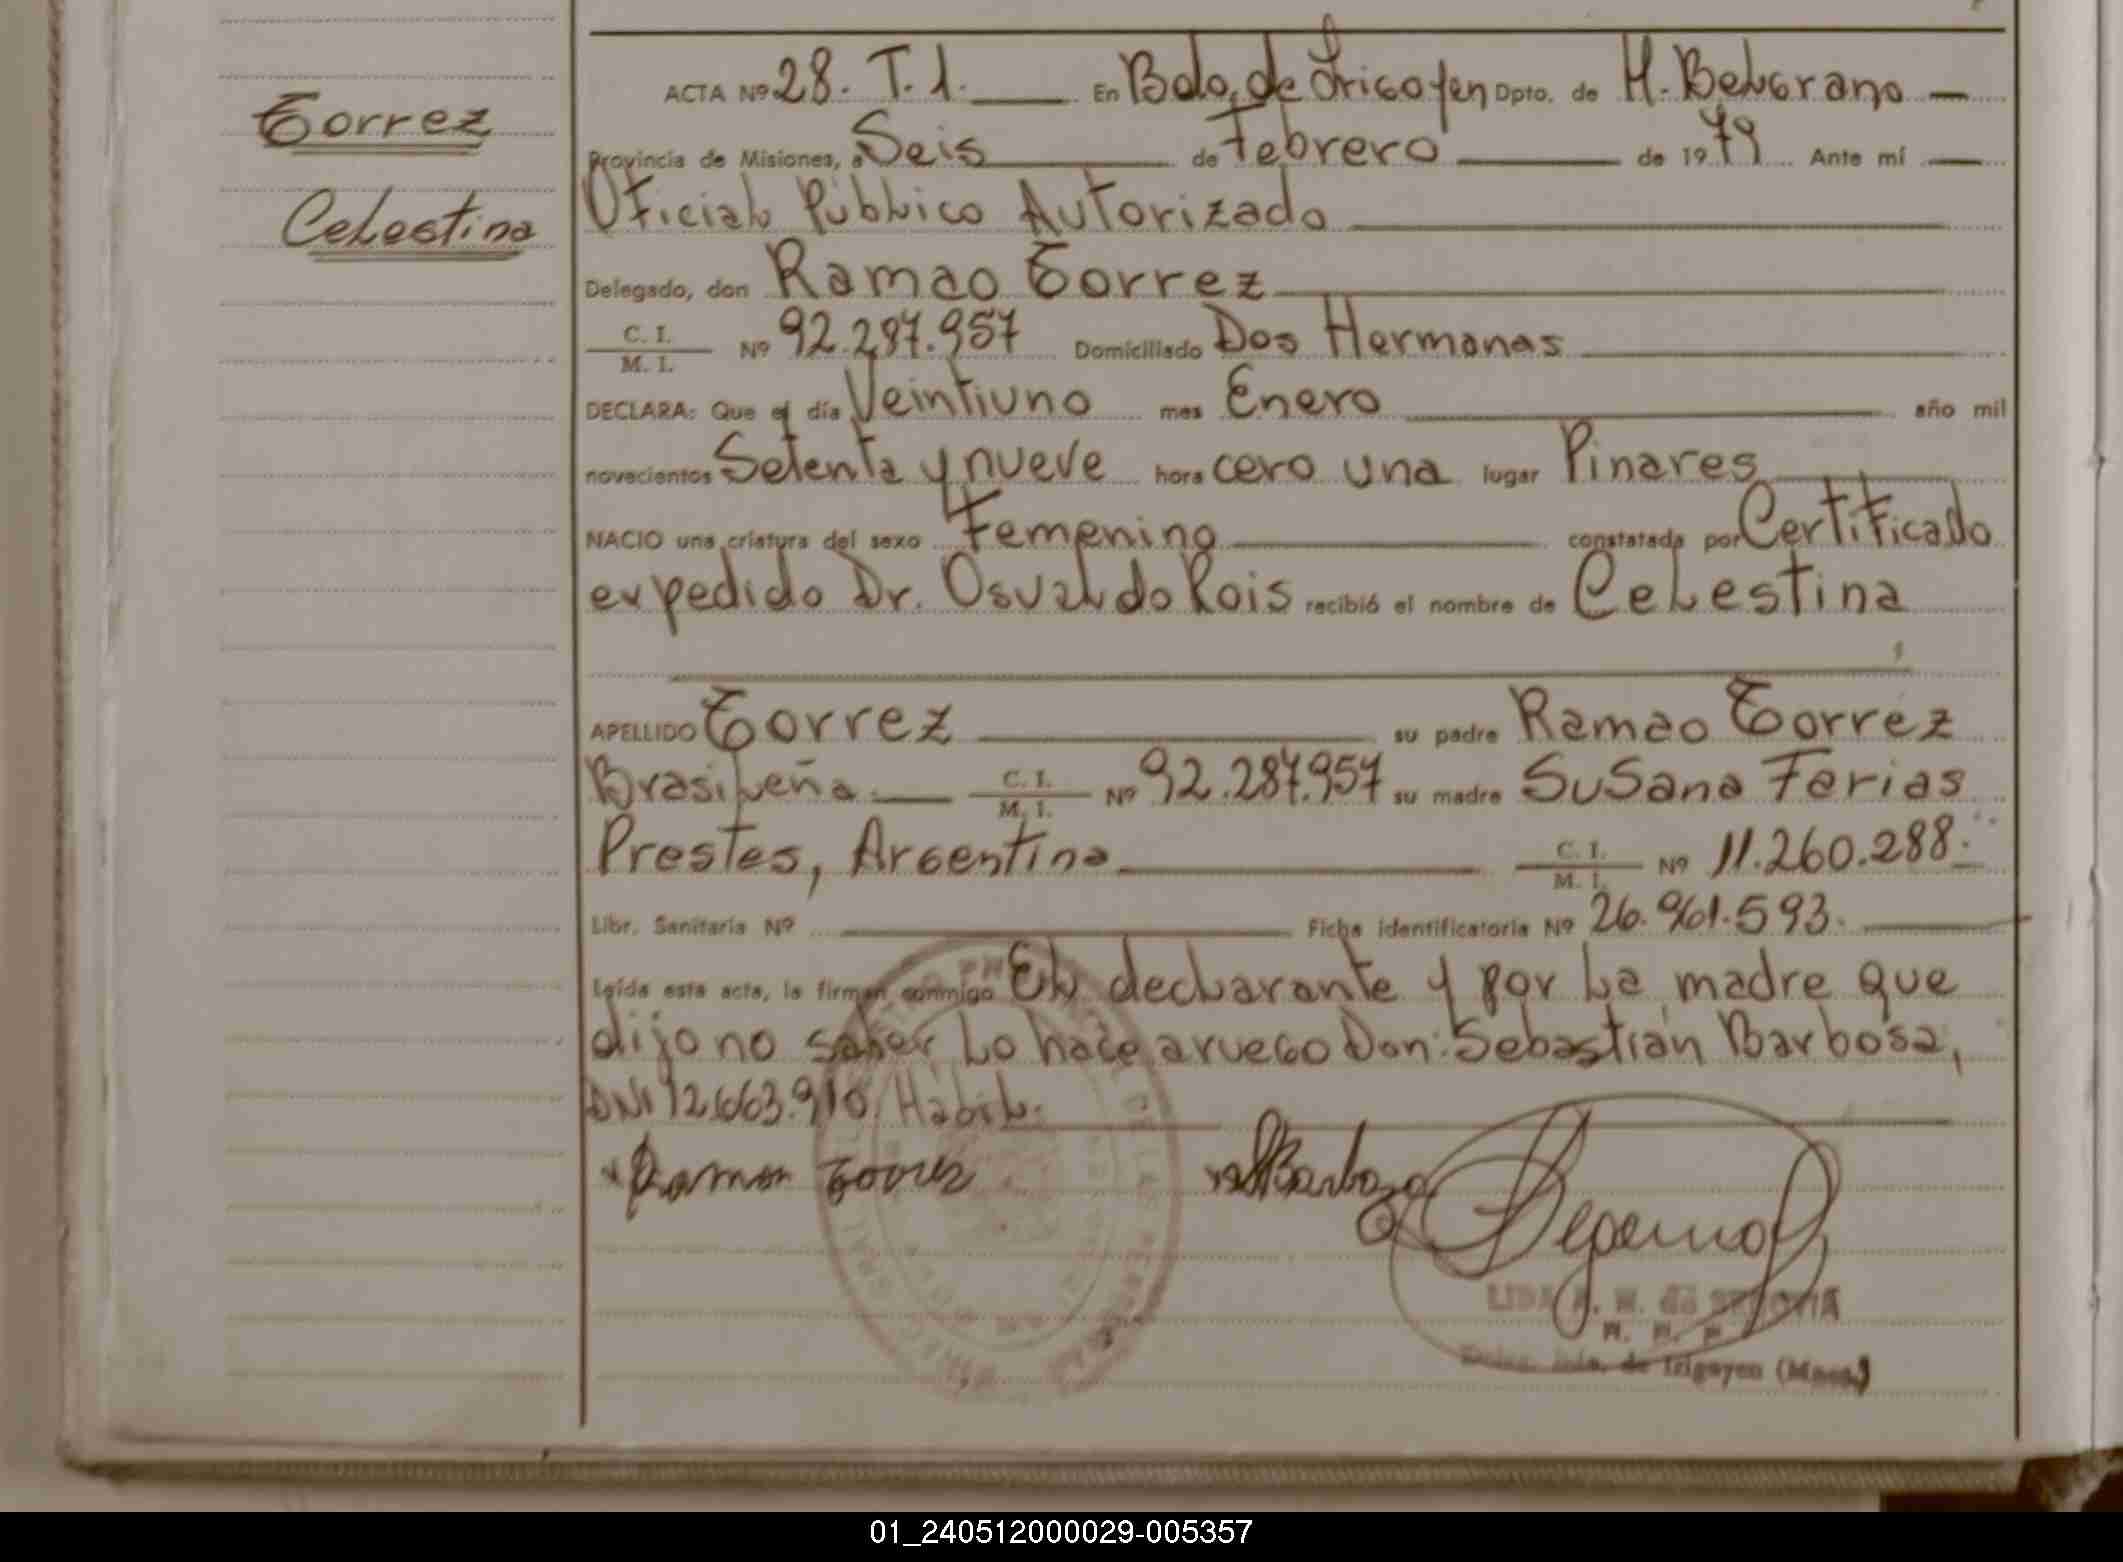 Torrez
Celestina
ACTA Nº 28. T. 1. En Bdo. de Irigoyen Dpto. de H. Belgrano
Provincia de Misiones, a Seis de Febrero de 1979 Ante mí
Oficial Público Autorizado
Delegado, don Ramao Torrez
C. I.
M. I. Nº 92.287.957 Domiciliado Dos Hermanas
DECLARA: Que el día Veintiuno mes Enero año mil
novecientos Setenta y nueve hora cero una lugar Pinares
NACIO una criatura del sexo Femenino constatada por Certificado
expedido Dr. Osvaldo Rois recibió el nombre de Celestina
APELLIDO Torrez su padre Ramao Torrez
Brasileña C. I. M. I. Nº 92.287.957 su madre Susana Farias
Prestes, Argentina C. I. M. I. Nº 11.260.288.
Libr. Sanitaria Nº Ficha identificatoria Nº 26.961.593.
Leída esta acta, la firman conmigo El declarante y por la madre que
dijo no saber lo hace a ruego Don: Sebastián Barbosa,
DNI 12.663.910 Habil.
Ramon Torrez
de Irigoyen (Mnes.)
01_240512000029-005357